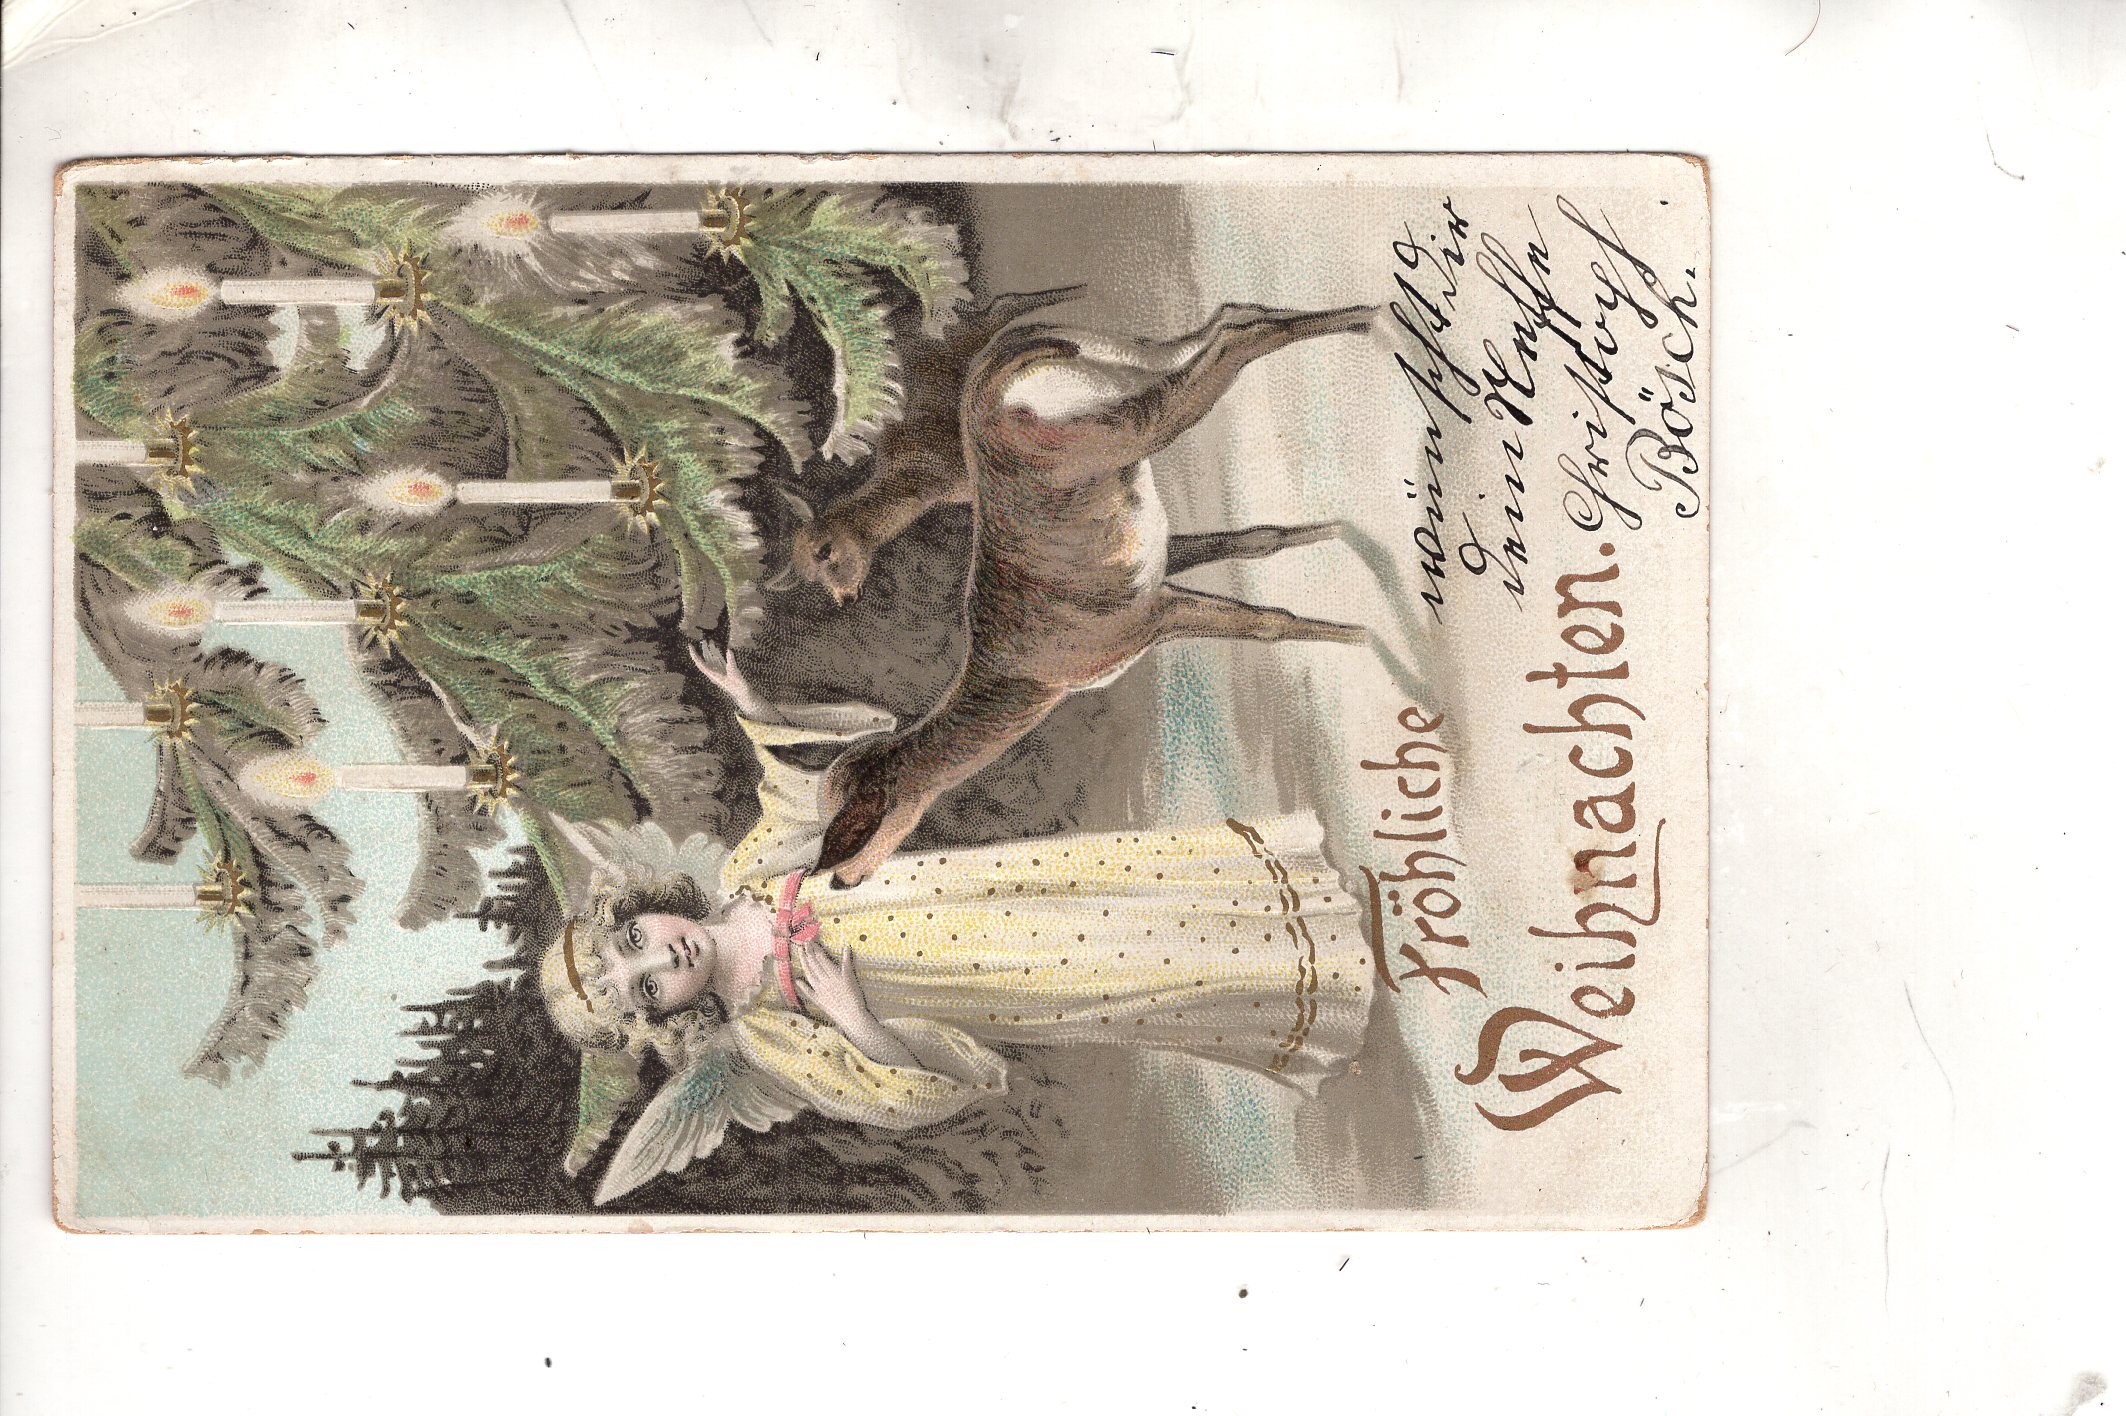 Fröhliche
Weihnachten.
wünscht Dir
Dein Neffe
Christoph
Bösch.